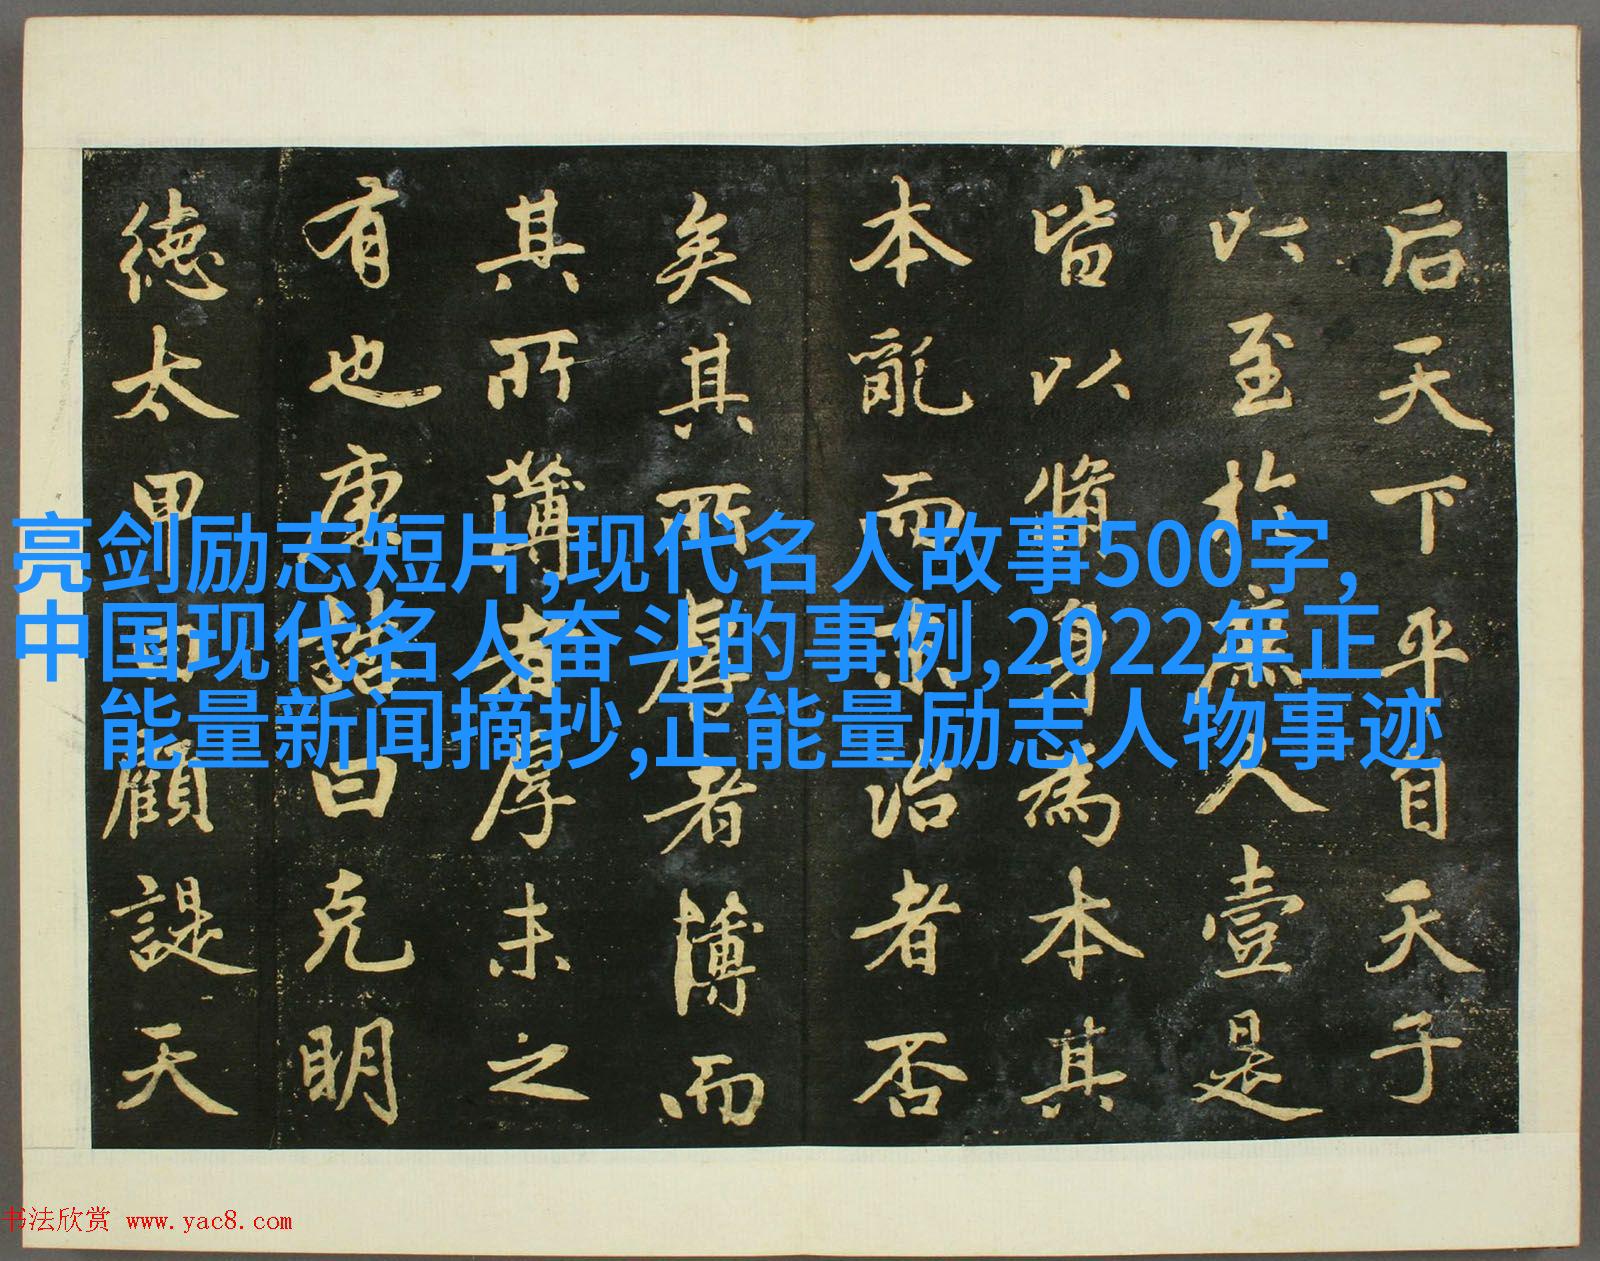 后天下平自天子
以至於庶人壹是
皆以脩身為本其
本亂而末治者否
矣其所厚者薄而
其所薄者厚未之
有也康誥曰克明
徳太甲曰顧諟天
亮剑励志短片,现代名人故事500字,
中国现代名人奋斗的事例,2022年正
能量新闻摘抄,正能量励志人物事迹
书法欣赏 www.yac8.com